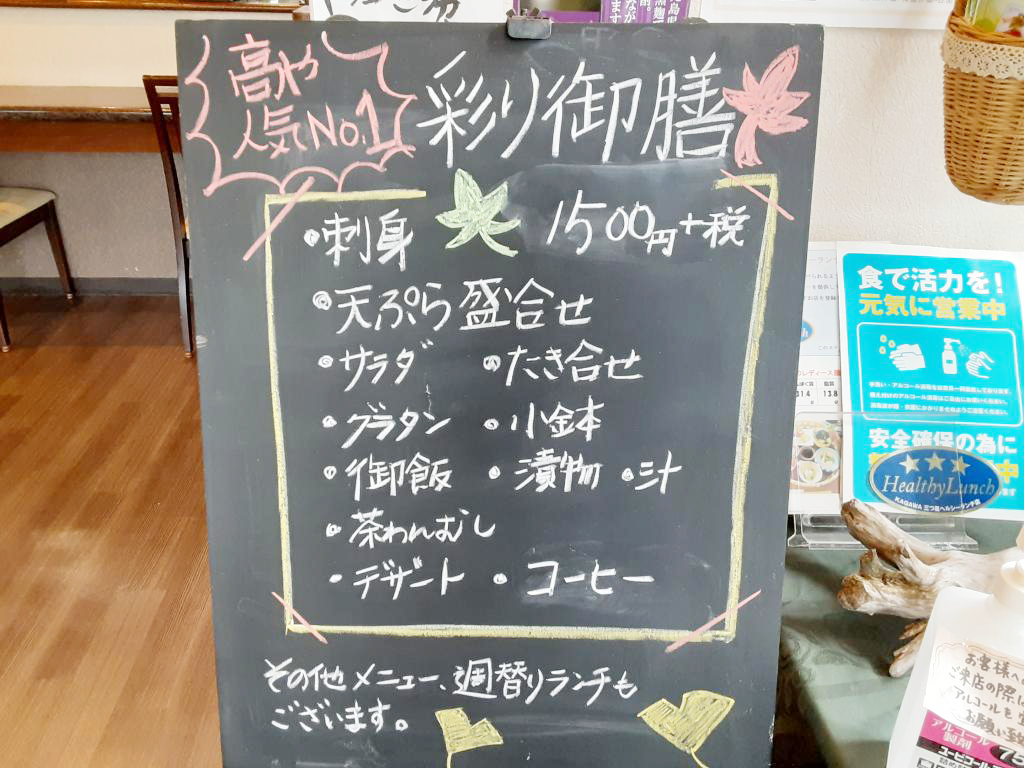 高や
人気No.1
彩り御膳
・刺身 1500円+税
・天ぷら盛合せ
・サラダ ・たき合せ
・グラタン ・小鉢
・御飯 ・漬物 ・汁
・茶わんむし
・デザート ・コーヒー
その他メニュー、週替りランチも
ございます。
食で活力を!
元気に営業中
安全確保の為に
中
★★★
HealthyLunch
KAGAWA 三つ星ヘルシーランチ店
お客様へ
ご来店の際に
アルコールを
お願い致
アルコール
製剤
75